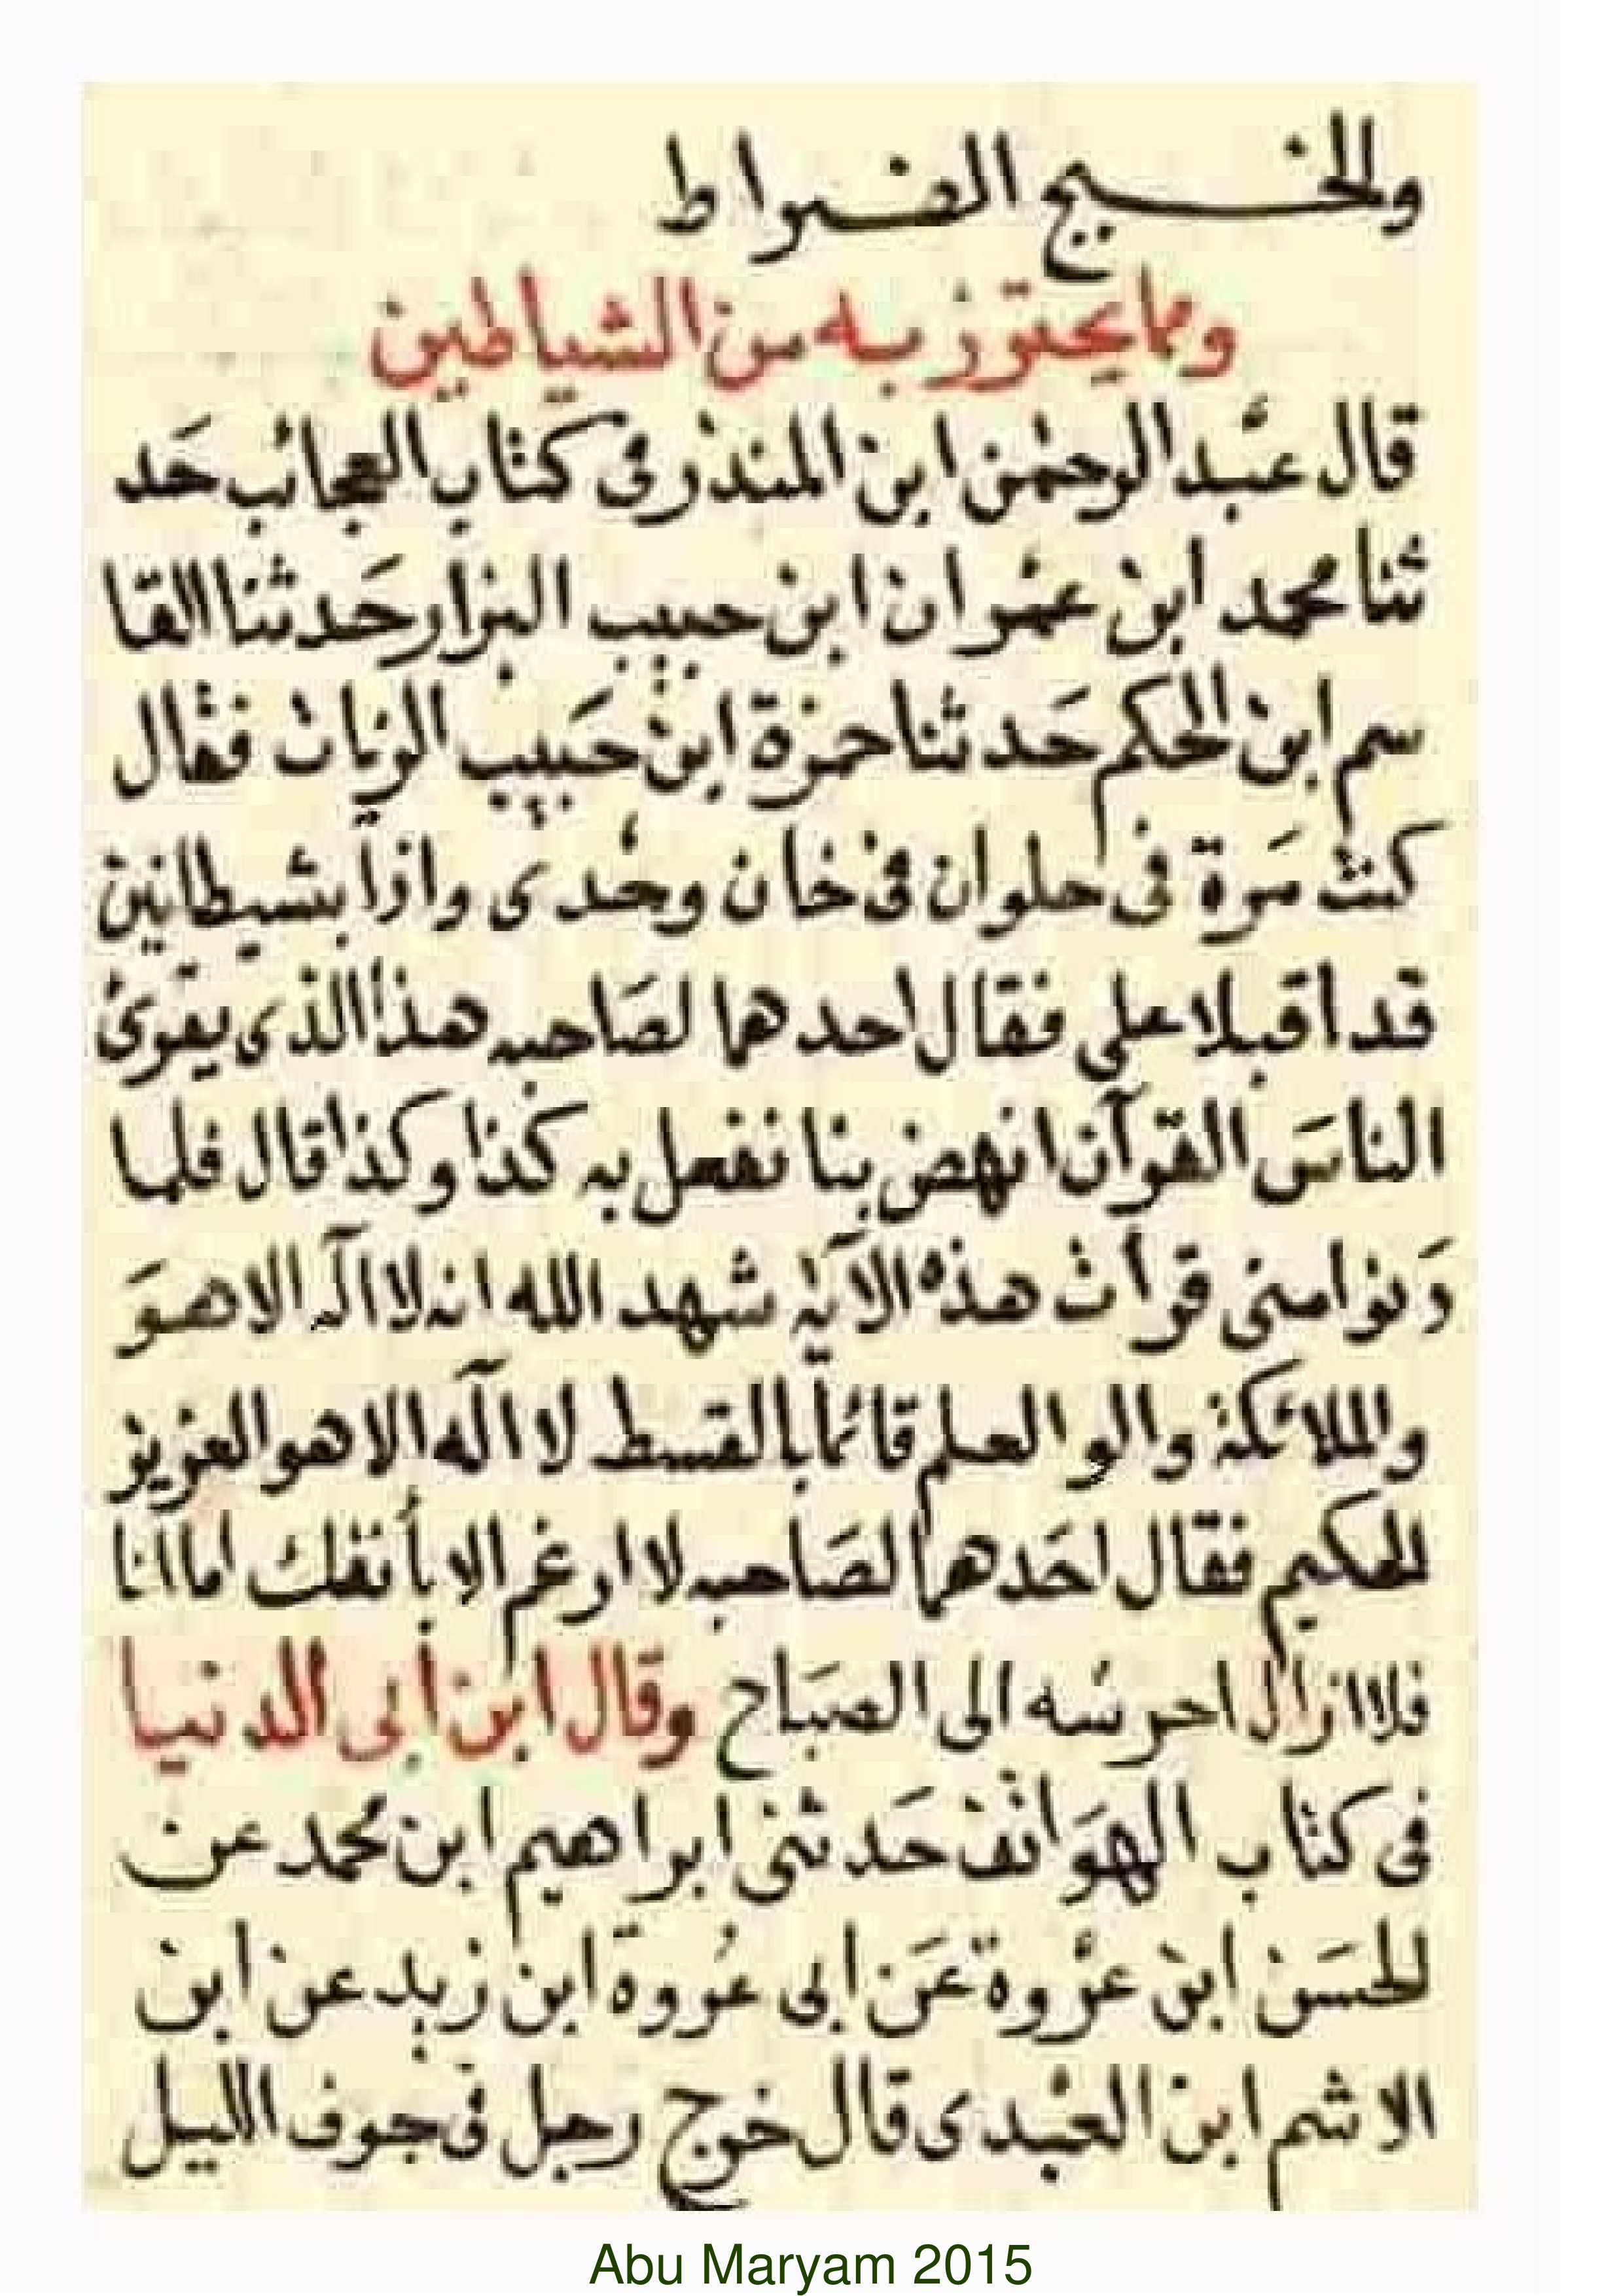 والخسيج الضراط
ومما يحترز به من الشياطين
قال عبد الرحمن ابن المنذر في كتاب العجائب حَد
ثنا محمد ابن عمران ابن حبيب البزار حَدثنا القا
سم ابن الحكم حَدثنا حمزة ابن حَبيب الزيات فقال
كنت مَرة في حلوان في خان وحدى واذا بشيطانين
قد أقبلا علي فقال احدهما لصَاحبه هذا الذى يقرئ
الناسَ القرآن انهض بنا نفعل به كذا وكذا قال فلما
دَنوا منى قرأت هذه الآية شهد الله انه لا اله الا هوَ
والملائكة والو العلم قائما بالقسط لا اله الا هو العزيز
الحكيم فقال احَدهما لصَاحبه لا ارغم الا بأنفك اما انا
فلا ازال احرسه الى الصبَاح وقال ابن أبى الدنيا
في كتاب الهوَاتف حَدثنى ابراهيم ابن محمد عن
الحسَن ابن عروة عَن ابى عروة ابن زيد عن ابن
الاشم ابن العبدى قال خرج رجل في جوف الليل
Abu Maryam 2015